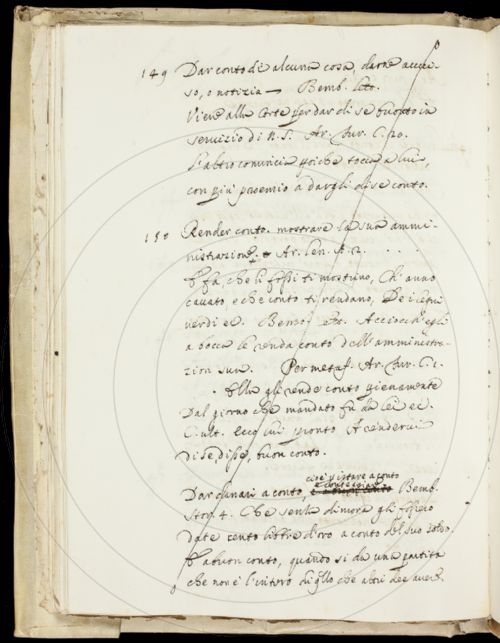 149 Dar conto di alcuna cosa, darne avvi-
so, o notizia — Bemb. lett.
Viene alla Corte per dar di se buon conto in
servizio di N. S. Ar. Fur. C. 20.
L'altro comincia poiche tocca a lui,
con più proemio a dargli di se conto.
150 Render conto. mostrare la sua ammi-
nistrazione. Ar. Len. A. 2.
E fa, che li ti mostrino, Ch' anno
cavato, e che conto ti rendano, De i
verdi ec. Bemb. Acciocch' egli
a bocca le renda conto dell' amministra-
zion sua. Per metaf. Ar. Fur. C. 1.
Ella gli rende conto pienamente
Dal giorno che mandato fu da lei ec.
C. ult. Ecco qui pronto A rendervi
Di se, disse, buon conto.
cioè prestare a conto
Dar danari a conto, Bemb.
Stor. 4. Che senza dimora gli fossero
date cento libbre d'oro a conto del suo soldo.
E a buon conto, quando si dà una partita
che non è l'intero di qllo che altri dee avere.